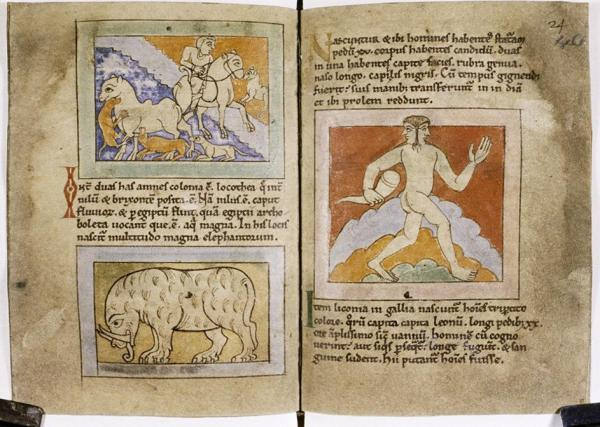 Int̄ duas has amnes colonia ē. locothea q̄ int̄
nilū & brixontē posita ē. Nā nilus ē. caput
fluuior̄. & p̄ egiptū fluit, quā egiptii archo
boleta uocant que ē. aq̄ magna. In his locis
nascit̄ multitudo magna elephantorum.
24
Nascuntur & ibi homines habentes staturā
pedū .xv. corpus habentes candidū. duas
in una habentes capite facies. rubra genua.
naso longo. capillis nigris. Cū tempus gignendi
fuerit. suis manibꝰ transferunt̄ in in diā
et ibi prolem reddunt.
Item liconia in gallia nascunt̄ hoīes tripito
colore. qrū capita capita leonū. longi pedibꝰ .xx.
ore āplissimo sic̄ uannū. Hominē cū cogno
uerint. aut siqs p̄seqt̄. longe fugiunt̄. & san
guine sudent. Hii putant̄ hoīes fuisse.